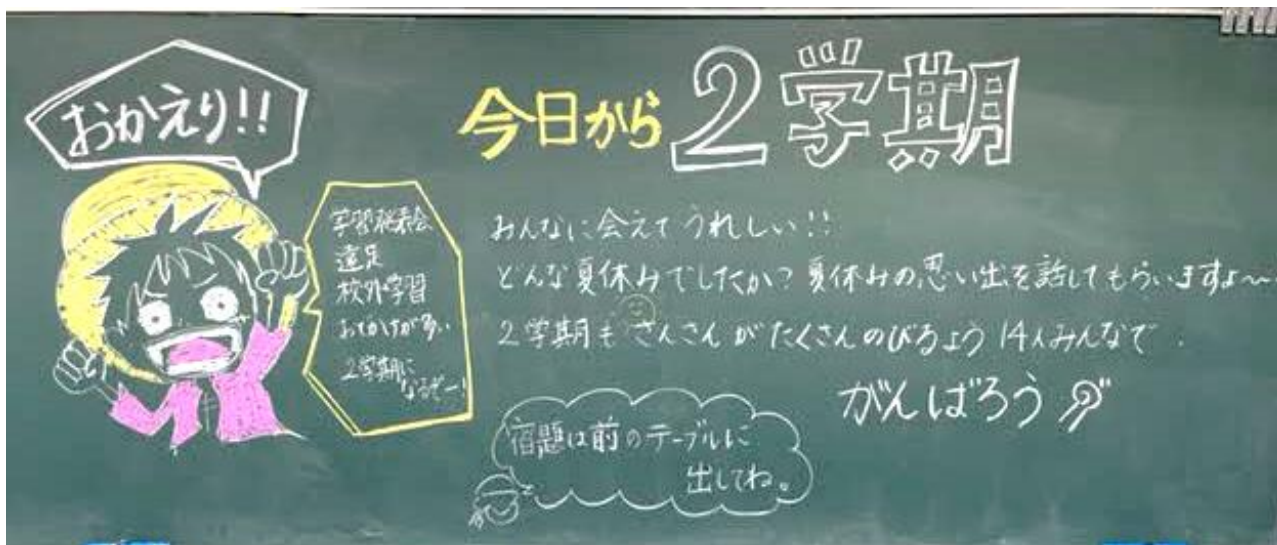 おかえり!!
今日から2学期
学習発表会
遠足
校外学習
おでかけが多い
2学期に
なるぞー!
みんなに会えてうれしい!!
どんな夏休みでしたか?夏休みの思い出を話してもらいますよ〜
2学期も さんさん が たくさんのびるよう 14人みんなで
がんばろう
宿題は前のテーブルに
出してね。